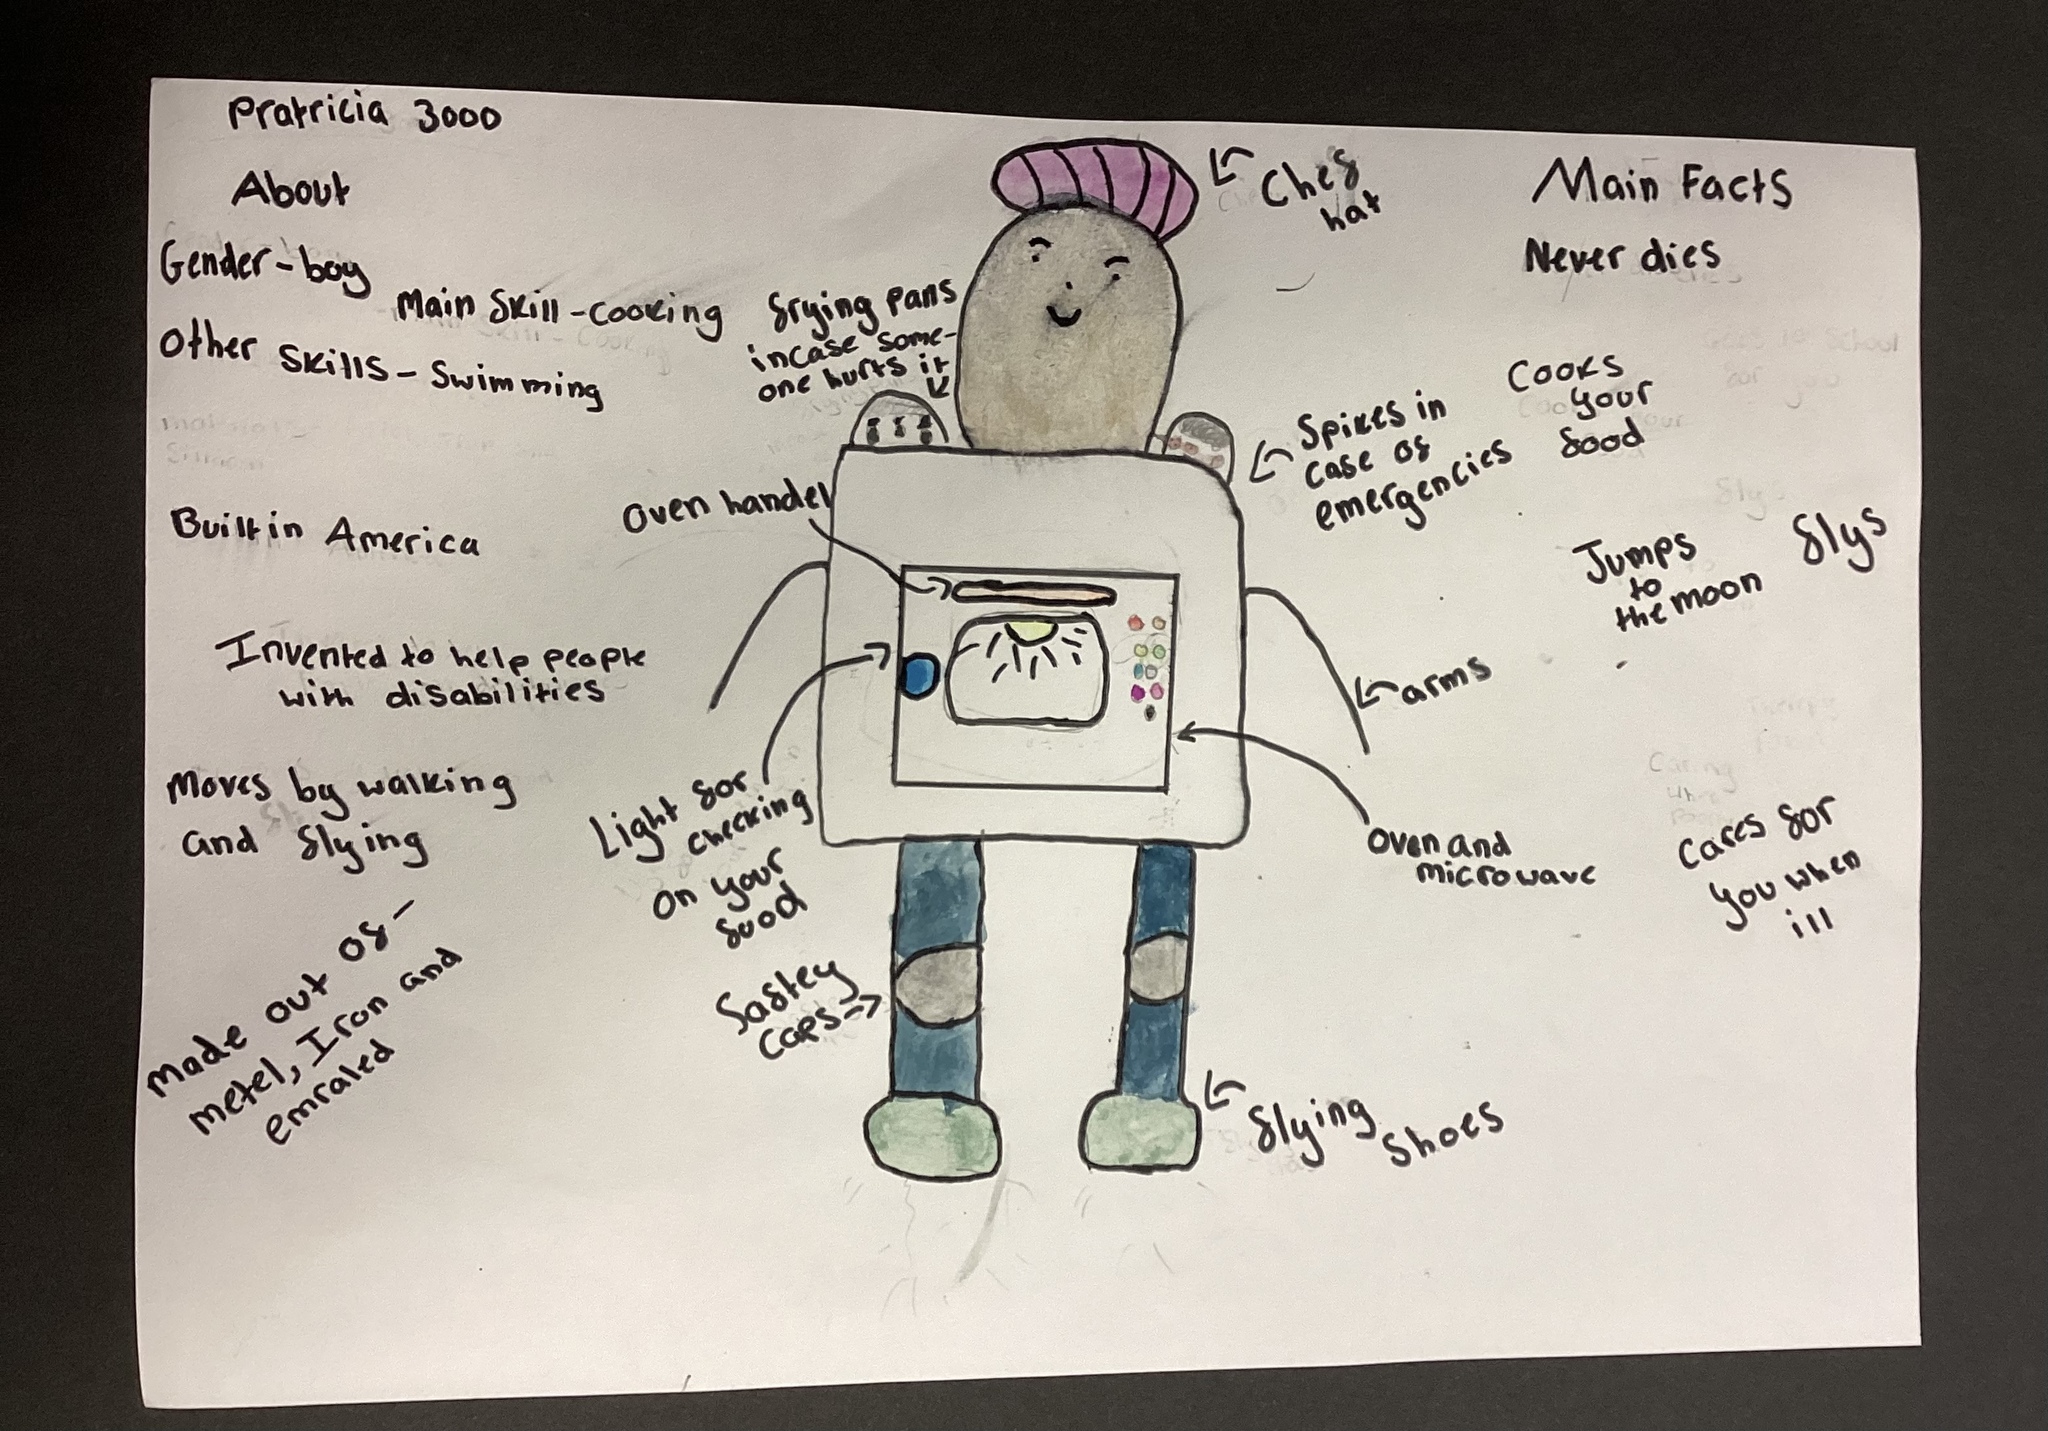 Pratricia 3000
About
Gender - boy
Main Skill - cooking
Other Skills - Swimming
Built in America
Invented to help people
with disabilities
Moves by walking
and flying
made out of -
metel, Iron and
emraled
frying pans
incase some-
one hurts it
oven handel
Light for
checking
on your
food
Saftey
caps
Chef
hat
Spikes in
case of
emergencies
arms
oven and
microwave
flying
Shoes
Main Facts
Never dies
Cooks
your
food
Jumps
to
the moon
flys
Cares for
you when
ill